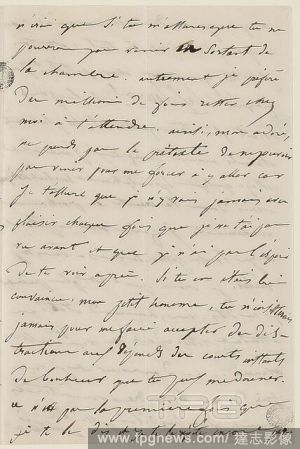 n'irai que si tu m'assures que tu ne
pourras pas venir en sortant de
la chambre. autrement je préfère
des millions de fois rester chez
moi à t'attendre. ainsi, mon adoré,
ne prends pas le prétexte de
pour me forcer à y aller car
je t'assure que je n'y vais jamais avec
plaisir chaque fois que je ne t'ai pas
vu avant et que je n'ai pas l'espoir
de te voir après. Si tu en étais bien
convaincu, mon petit homme, tu
jamais pour me faire accepter des dis-
tractions aux dépends des courts instants
de bonheur que tu peux me donner.
ce n'est pas la première fois que
je te le dis
TPG
www.tpgnews.com/達志影像